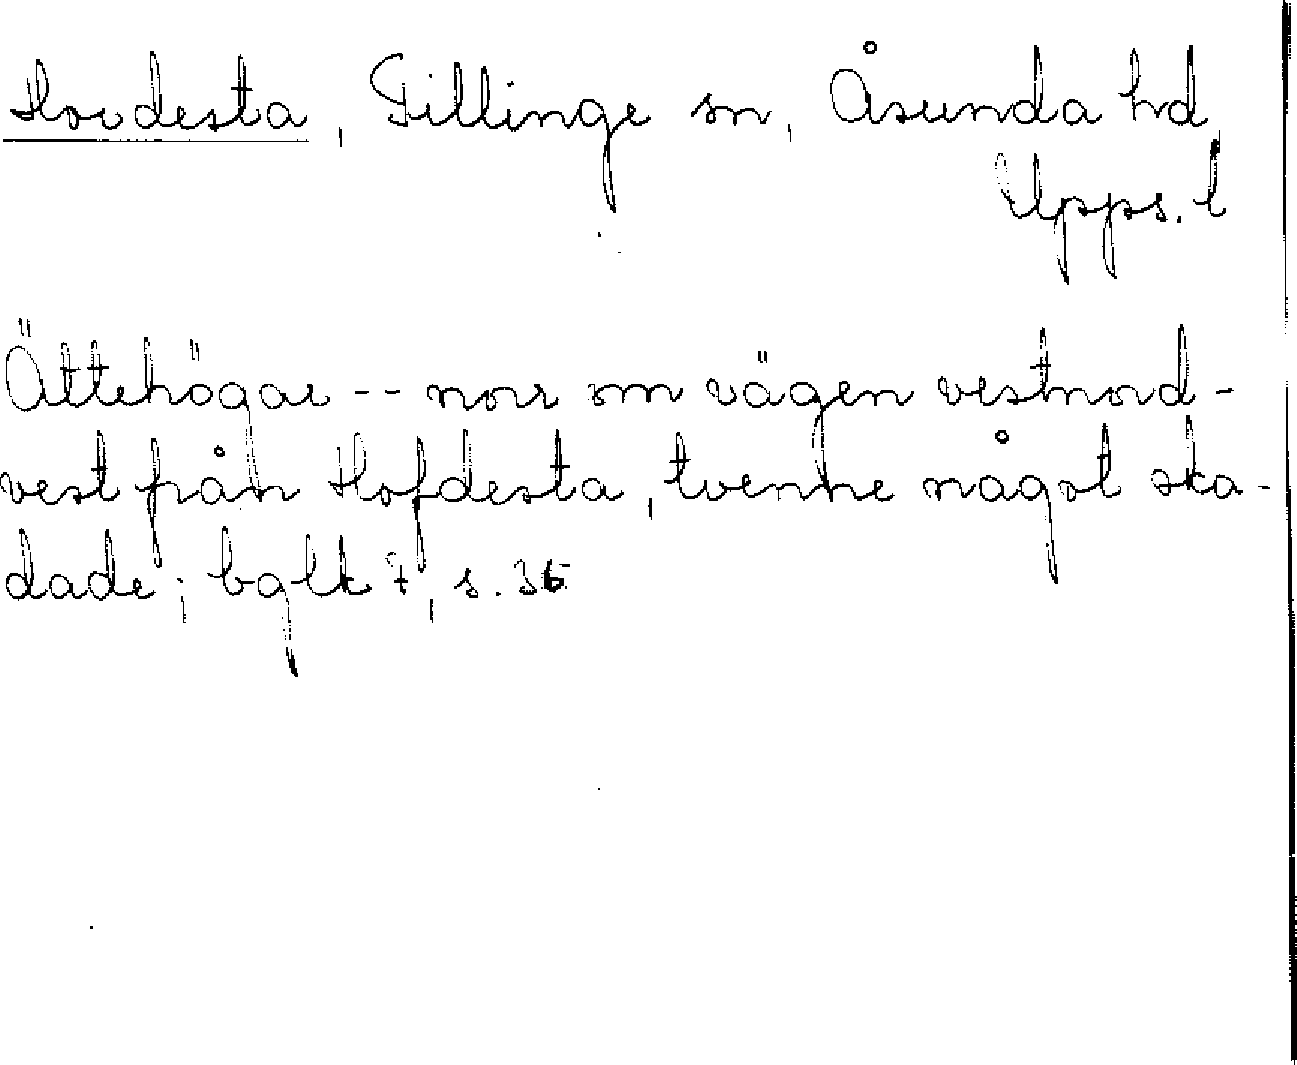 Hovdesta, Tillinge sn, Åsunda hd,
Upps. l
Ättehögar -- norr om vägen vestnord-
vest från Hofdesta, tvenne något ska-
dade; bglk 7, s. 36